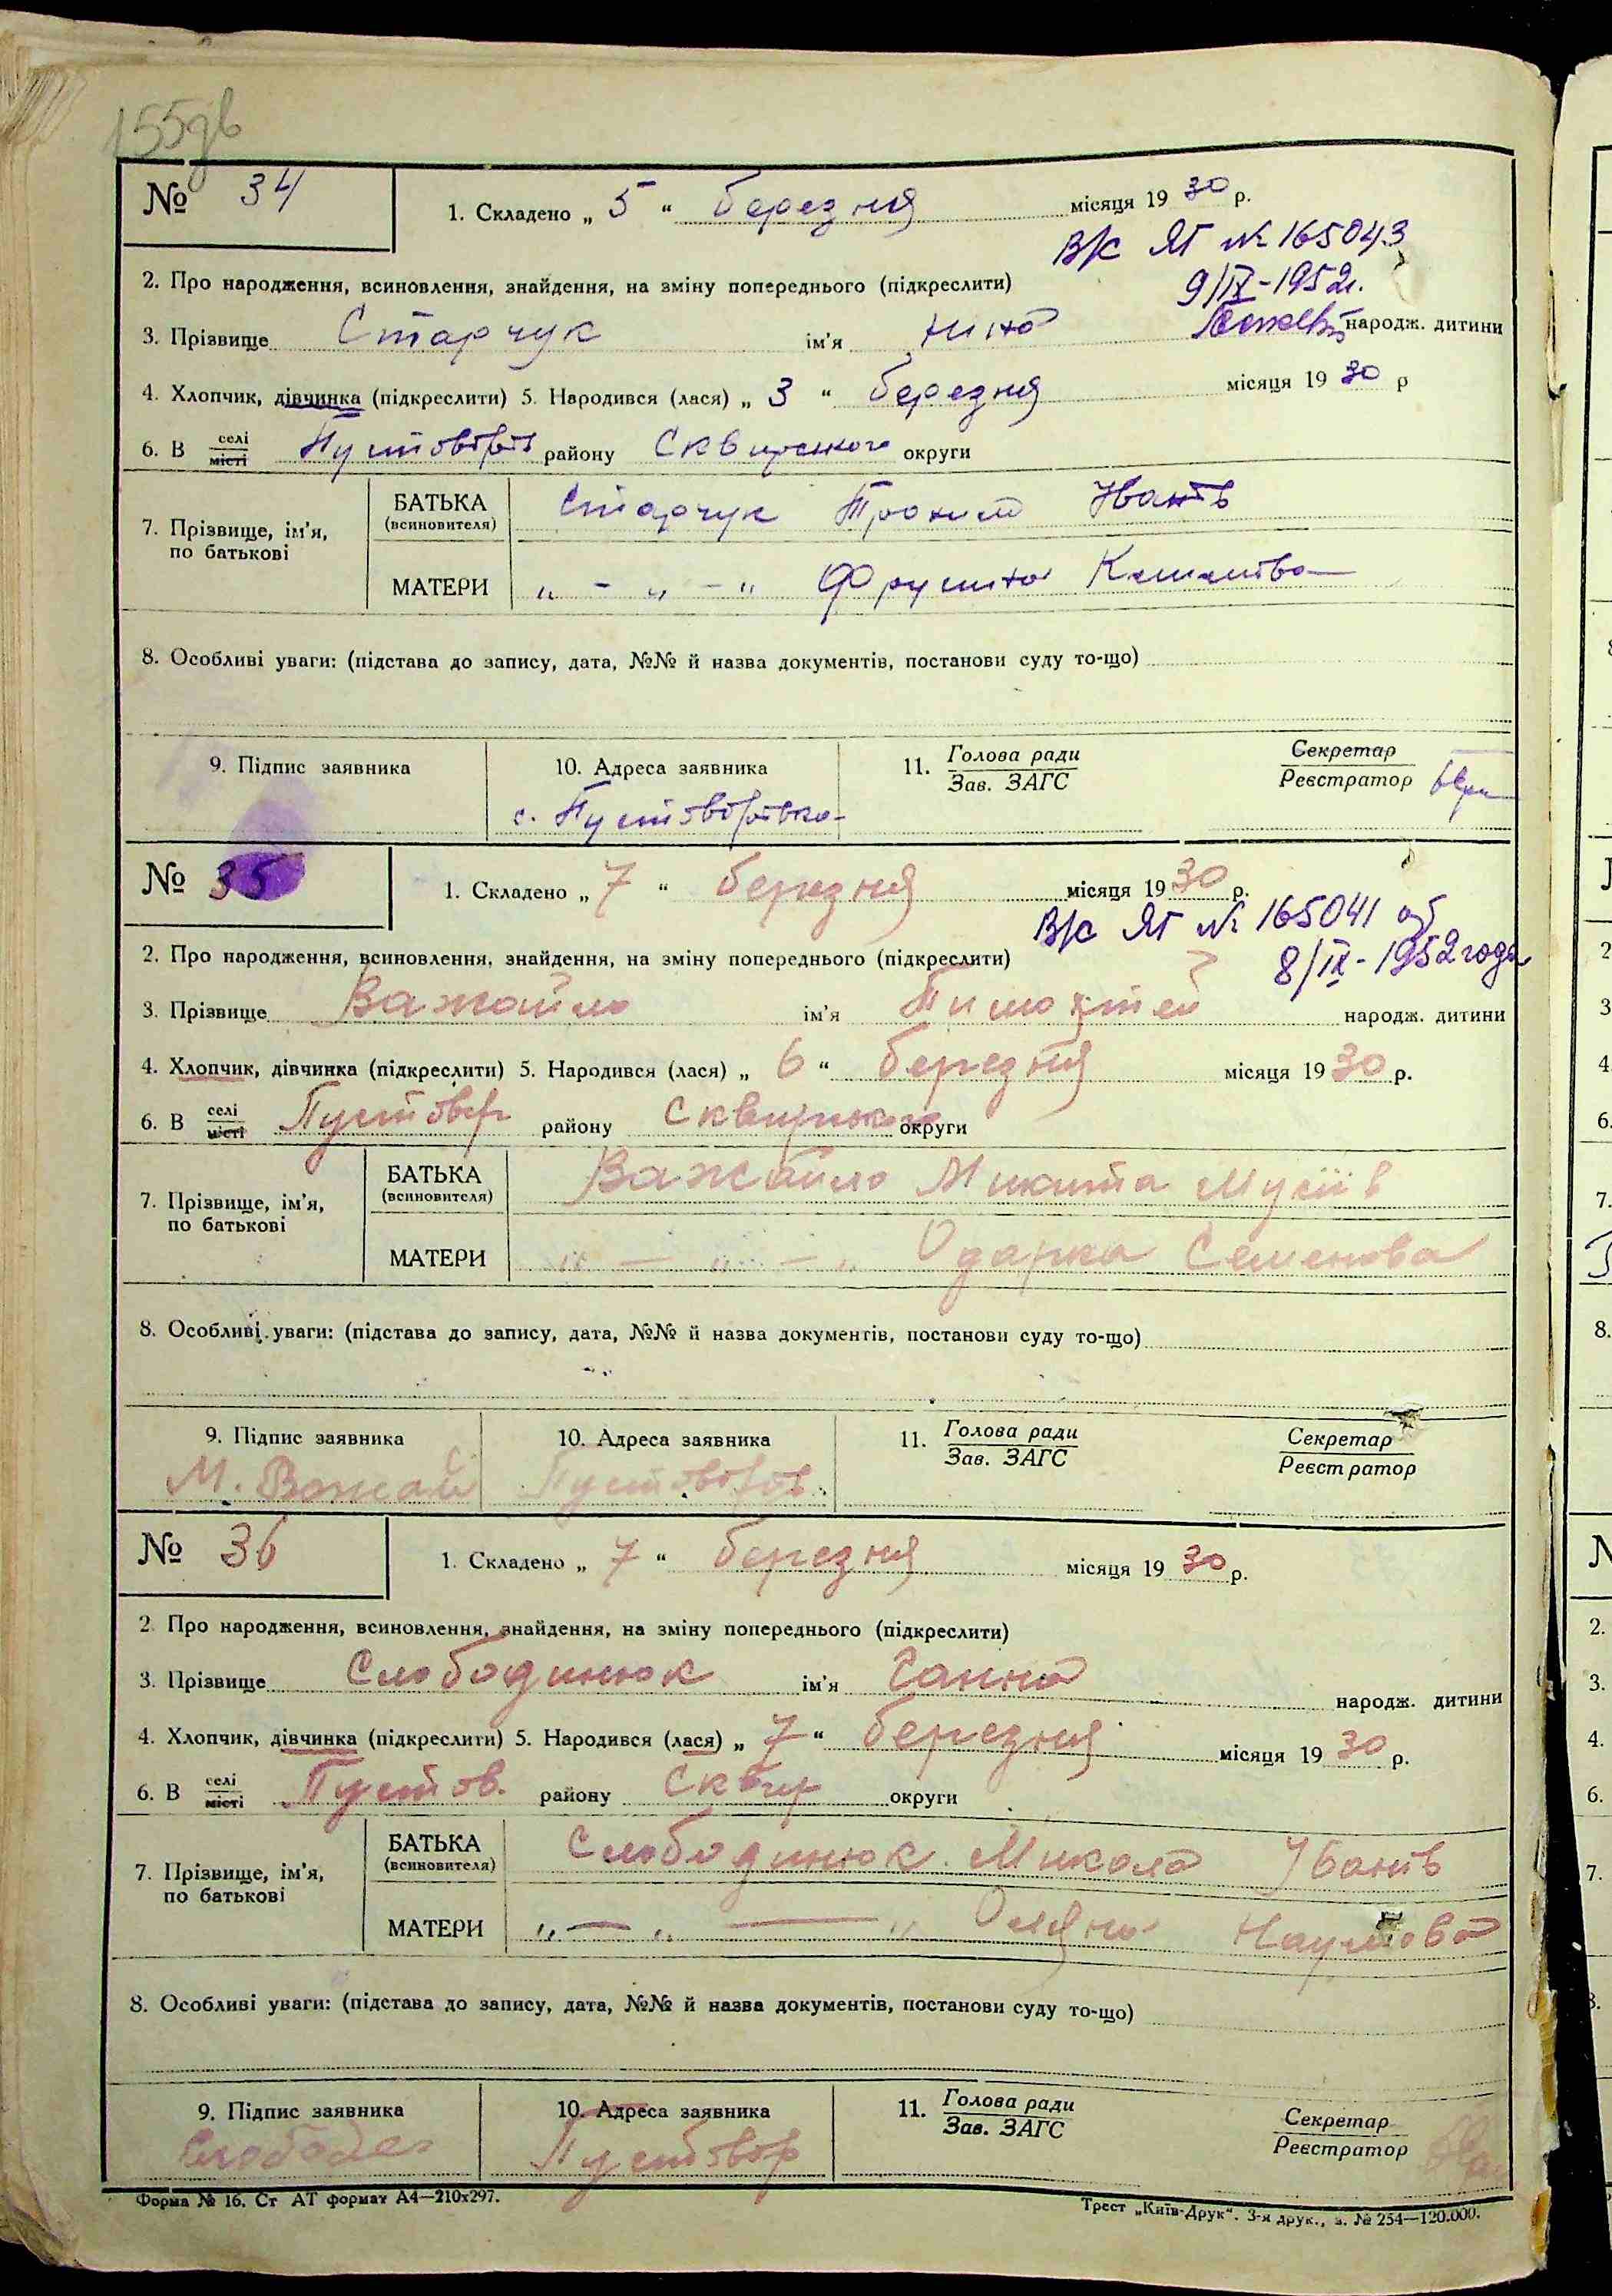 155дв
№ 34
1. Складено „ 5 “ березня місяця 19 30 р.
В/с ЯГ № 165043
2. Про народження, всиновлення, знайдення, на зміну попереднього (підкреслити)
9/IX-1952г.
3. Прізвище Старчук ім'я Ніна народж. дитини
4. Хлопчик, дівчинка (підкреслити) 5. Народився (лася) „ 3 “ березня місяця 19 30 р
6. В селі місті району Сквирського округи
7. Прізвище, ім'я, по батькові
БАТЬКА (всиновителя) Старчук Трохим Іванів
МАТЕРИ „ - „ - „
8. Особливі уваги: (підстава до запису, дата, №№ й назва документів, постанови суду то-що)
9. Підпис заявника
10. Адреса заявника
11. Голова ради Зав. ЗАГС
Секретар Реєстратор
с. Пустоворівка
№ 35
1. Складено „ 7 “ березня місяця 19 30 р.
В/с ЯГ № 165041 об
2. Про народження, всиновлення, знайдення, на зміну попереднього (підкреслити)
8/IX-1952 года
3. Прізвище Важайло ім'я Тимохтей народж. дитини
4. Хлопчик, дівчинка (підкреслити) 5. Народився (лася) „ 6 “ березня місяця 19 30 р.
6. В селі місті Пустовор району Сквирського округи
7. Прізвище, ім'я, по батькові
БАТЬКА (всиновителя) Важайло Микита Мусіїв
МАТЕРИ „ — „ — „ Одарка Семенова
8. Особливі уваги: (підстава до запису, дата, №№ й назва документів, постанови суду то-що)
9. Підпис заявника
10. Адреса заявника
11. Голова ради Зав. ЗАГС
Секретар Реєстратор
М. Важай Пустоворів.
№ 36
1. Складено „ 7 “ березня місяця 19 30 р.
2. Про народження, всиновлення, знайдення, на зміну попереднього (підкреслити)
3. Прізвище Слободинюк ім'я Ганна народж. дитини
4. Хлопчик, дівчинка (підкреслити) 5. Народився (лася) „ 7 “ березня місяця 19 30 р.
6. В селі місті Пустов. району Сквир округи
7. Прізвище, ім'я, по батькові
БАТЬКА (всиновителя) Слободинюк Микола Іванів
МАТЕРИ „ — „ — „ Оляна Наумова
8. Особливі уваги: (підстава до запису, дата, №№ й назва документів, постанови суду то-що)
9. Підпис заявника
10. Адреса заявника
11. Голова ради Зав. ЗАГС
Секретар Реєстратор
Пустовор
Форма № 16. Ст АТ формат А4—210х297.
Трест „Київ-Друк“. 3-я друк., з. № 254—120.000.